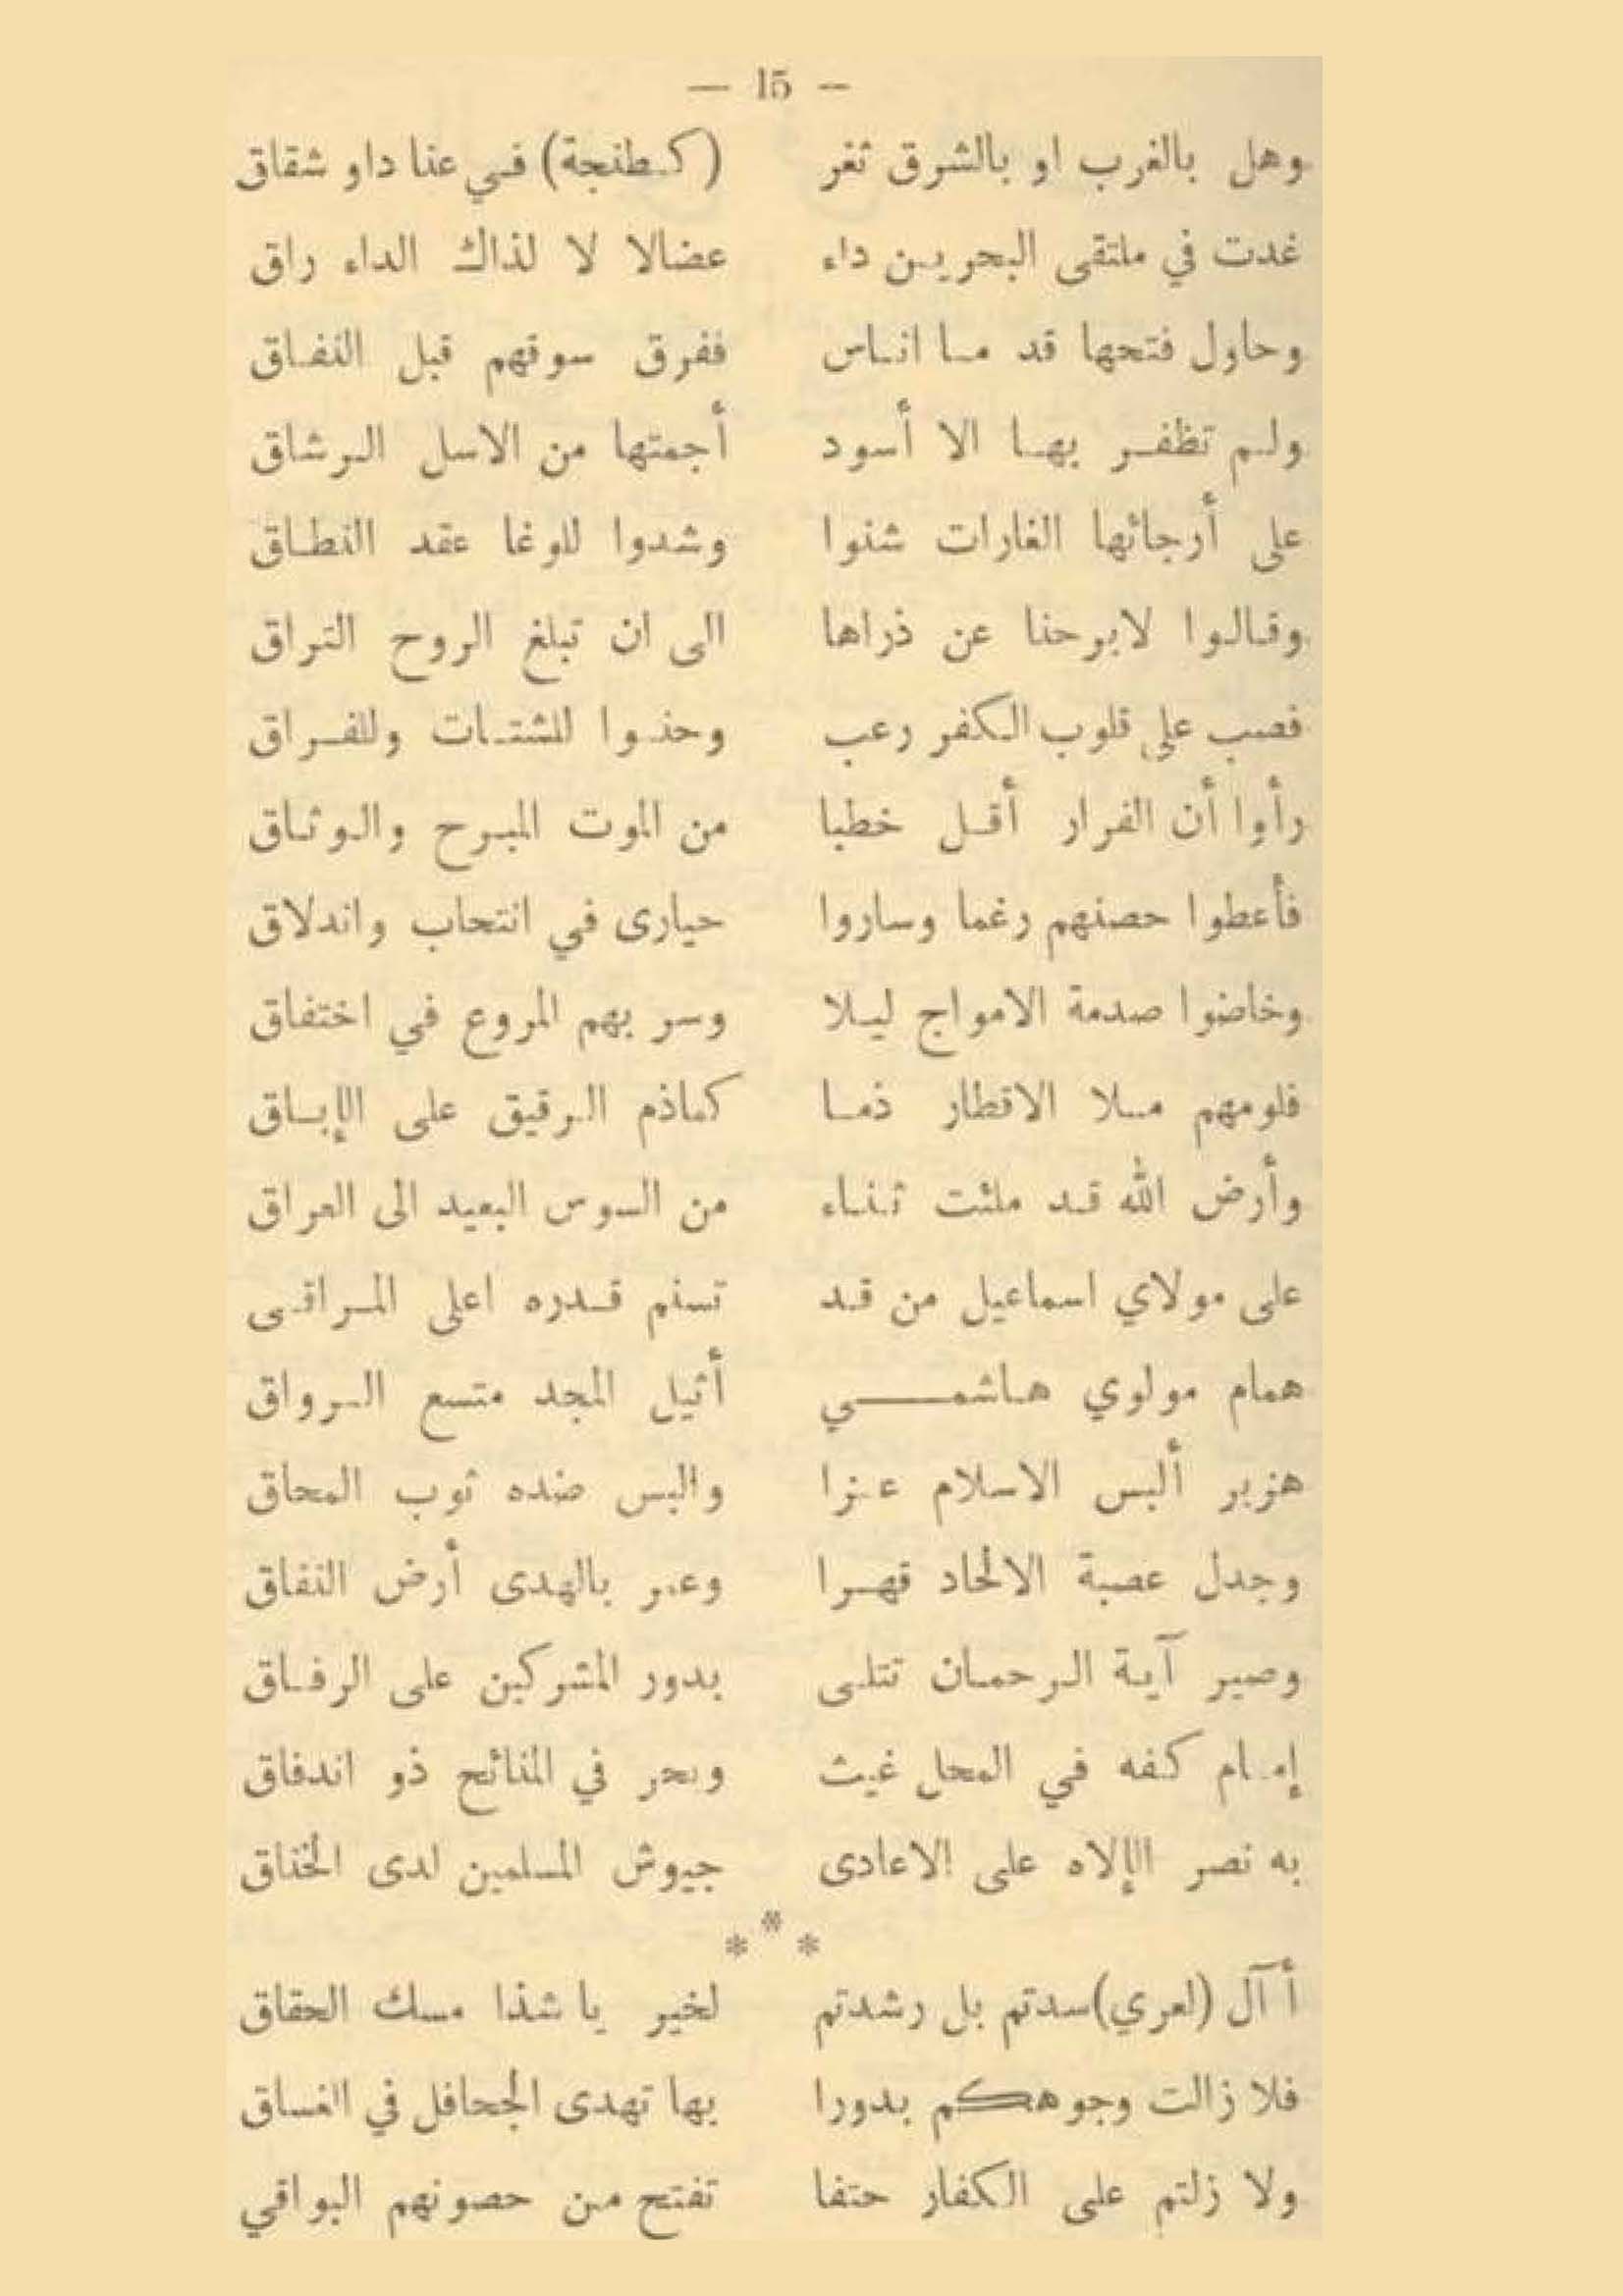 — 15 —
وهل بالغرب او بالشرق ثغر (كطنجة) في عنا داو شقاق
غدت في ملتقى البحرين داء عضالا لا لذاك الداء راق
وحاول فتحها قد ما اناس ففرق سوقهم قبل النفاق
ولم تظفر بها الا أسود أجمتها من الاسل الرشاق
على أرجائها الغارات شنوا وشدوا للوغا عقد النطاق
وقالوا لابرحنا عن ذراها الى ان تبلغ الروح التراق
فصب على قلوب الكفر رعب وحذوا للشتات وللفراق
رأوا أن الفرار أقل خطبا من الموت المبرح والوثاق
فأعطوا حصنهم رغما وساروا حيارى في انتحاب واندلاق
وخاضوا صدمة الامواج ليلا وسر بهم المروع في اختفاق
فلومهم ملا الاقطار ذما كماذم الرقيق على الإباق
وأرض الله قد ملئت ثناء من السوس البعيد الى العراق
على مولاي اسماعيل من قد تسنم قدره اعلى المراقى
همام مولوي هاشمي أثيل المجد متسع الرواق
هزبر ألبس الاسلام عزا والبس ضده ثوب المحاق
وجدل عصبة الالحاد قهرا وعبر بالهدى أرض النفاق
وصير آية الرحمان تتلى بدور المشركين على الرفاق
إمام كفه في المحل غيث وبحر في المنائح ذو اندفاق
به نصر الإلاه على الاعادى جيوش المسلمين لدى الخناق
* * *
أ آل (لعري) سدتم بل رشدتم لخير يا شذا مسك الحقاق
فلا زالت وجوهكم بدورا بها تهدى الجحافل في الغساق
ولا زلتم على الكفار حتفا تفتح من حصونهم البواقي